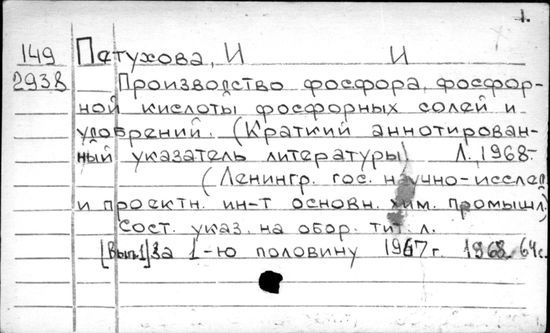 1.
149 Петухова, И И
2938 Производство фосфора, фосфор-
ной кислоты фосфорных солей и
удобрений. (Краткий аннотирован-
ный указатель литературы) Л., 1968.
(Ленингр. гос. научно-исслед
и проектн. ин-т основн. хим. промышл)
Сост. указ. на обор. тит. л.
[Вып.1] За 1-ю половину 1967 г. 1968. 64 с.